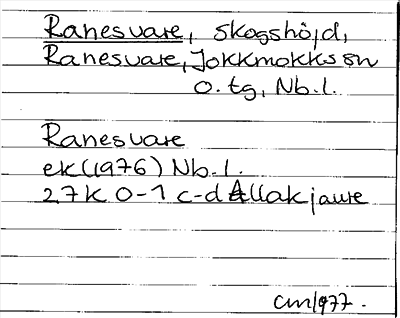 Ranesvare, skogshöjd,
Ranesvare, Jokkmokks sn
o. tg, Nb.l.
Ranesvare
ek (1976) Nb.l.
27K 0-1 c-d Allakjaure
CM/1977.